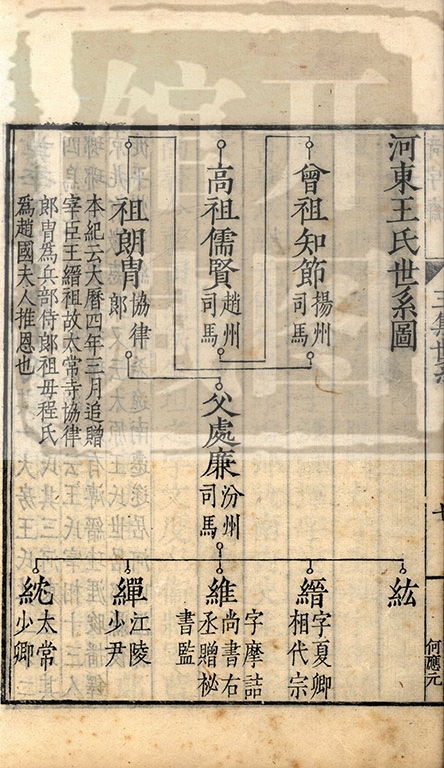 河東王氏世系圖
曾祖知節
揚州
司馬
高祖儒賢
趙州
司馬
祖朗胄
協律
郎
本紀云大曆四年三月追贈
宰臣王縉祖故太常寺協律
郎胄為兵部侍郎祖母程氏
為趙國夫人推恩也
父處廉
汾州
司馬
紘
縉
字夏卿
相代宗
維
字摩詰
尚書右
丞贈祕
書監
繟
江陵
少尹
紞
太常
少卿
何應元